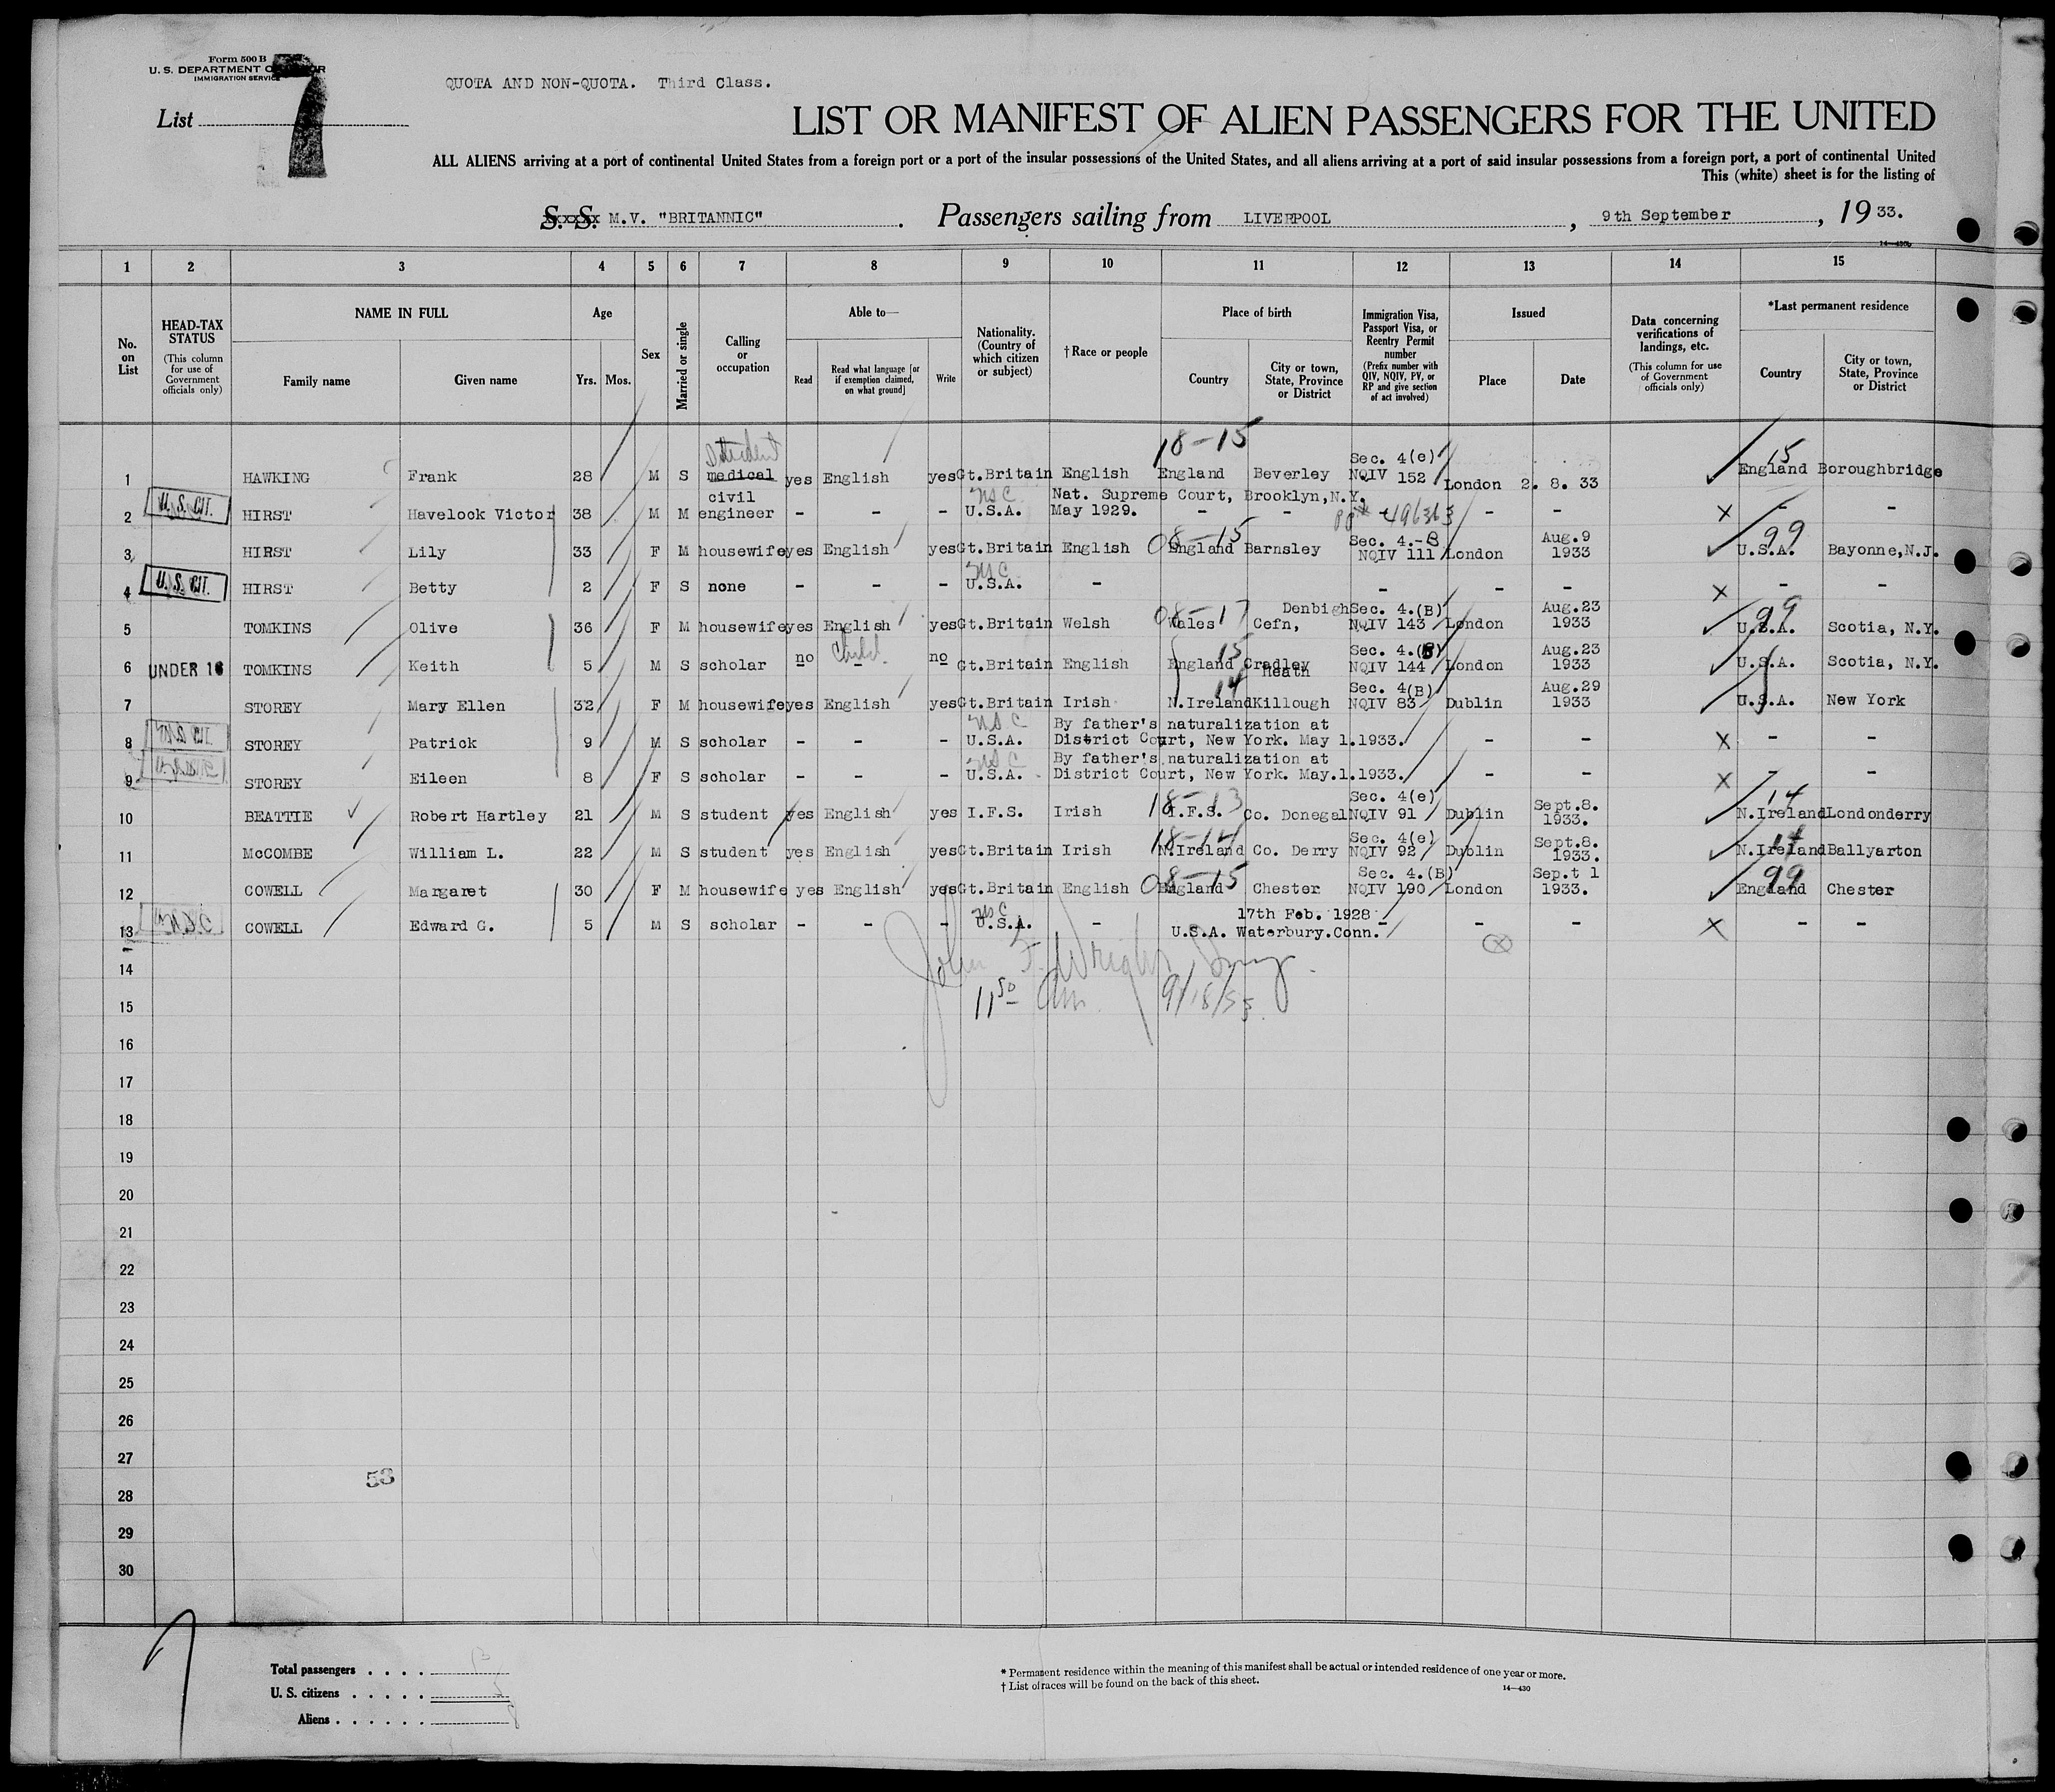 Form 500 B
U. S. DEPARTMENT OF LABOR
IMMIGRATION SERVICE
QUOTA AND NON-QUOTA. Third Class.
List 7
LIST OR MANIFEST OF ALIEN PASSENGERS FOR THE UNITED
ALL ALIENS arriving at a port of continental United States from a foreign port or a port of the insular possessions of the United States, and all aliens arriving at a port of said insular possessions from a foreign port, a port of continental United
This (white) sheet is for the listing of
S. S. M.V. "BRITANNIC" . Passengers sailing from LIVERPOOL , 9th September , 19 33.
14—430
1 2 3 4 5 6 7 8 9 10 11 12 13 14 15
No. on List
HEAD-TAX STATUS (This column for use of Government officials only)
NAME IN FULL
Family name Given name
Age
Yrs. Mos.
Sex
Married or single
Calling or occupation
Able to—
Read Read what language [or if exemption claimed, on what ground] Write
Nationality. (Country of which citizen or subject)
†Race or people
Place of birth
Country City or town, State, Province or District
Immigration Visa, Passport Visa, or Reentry Permit number (Prefix number with QIV, NQIV, PV, or RP and give section of act involved)
Issued
Place Date
Data concerning verifications of landings, etc. (This column for use of Government officials only)
*Last permanent residence
Country City or town, State, Province or District
1 HAWKING Frank 28 M S Student medical yes English yes Gt.Britain English 18-15 England Beverley Sec. 4(e) NQIV 152 London 2. 8. 33 15 England Boroughbridge
2 U.S. CIT. HIRST Havelock Victor 38 M M civil engineer - - - USC U.S.A. Nat. Supreme Court, Brooklyn, N.Y. May 1929. - - PP# 496363 - - X - -
3 HIRST Lily 33 F M housewife yes English yes Gt.Britain English 08-15 England Barnsley Sec. 4.-B NQIV 111 London Aug.9 1933 99 U.S.A. Bayonne,N.J.
4 U.S. CIT. HIRST Betty 2 F S none - - - USC U.S.A. - - - - X - -
5 TOMKINS Olive 36 F M housewife yes English yes Gt.Britain Welsh 08-17 Wales Denbigh Cefn, Sec. 4.(B) NQIV 143 London Aug.23 1933 99 U.S.A. Scotia, N.Y.
6 UNDER 16 TOMKINS Keith 5 M S scholar no Child - no Gt.Britain English 15 England Cradley Heath Sec. 4.(B) NQIV 144 London Aug.23 1933 U.S.A. Scotia, N.Y.
7 STOREY Mary Ellen 32 F M housewife yes English yes Gt.Britain Irish 14 N.Ireland Killough Sec. 4(B) NQIV 83 Dublin Aug.29 1933 U.S.A. New York
8 U.S. CIT. STOREY Patrick 9 M S scholar - - - USC U.S.A. By father's naturalization at District Court, New York. May 1.1933. - - X - -
9 STOREY Eileen 8 F S scholar - - - USC U.S.A. By father's naturalization at District Court, New York. May.1.1933. - - X - -
10 BEATTIE Robert Hartley 21 M S student yes English yes I.F.S. Irish 18-13 I.F.S. Co. Donegal Sec. 4(e) NQIV 91 Dublin Sept.8. 1933. 14 N.Ireland Londonderry
11 McCOMBE William L. 22 M S student yes English yes Gt.Britain Irish 18-14 N.Ireland Co. Derry Sec. 4(e) NQIV 92 Dublin Sept.8. 1933. 14 N.Ireland Ballyarton
12 COWELL Margaret 30 F M housewife yes English yes Gt.Britain English 08-15 England Chester Sec. 4.(B) NQIV 190 London Sep.t 1 1933. 99 England Chester
13 U.S.C COWELL Edward G. 5 M S scholar - - - USC U.S.A. - 17th Feb. 1928 U.S.A. Waterbury.Conn. - - - X - -
X
14 John F. Wright
15 11 50 Am. 9/18/33.
16
17
18
19
20
21
22
23
24
25
26
27
53
28
29
30
7
Total passengers . . . . 13
U. S. citizens . . . . . 5
Aliens . . . . . . 8
* Permanent residence within the meaning of this manifest shall be actual or intended residence of one year or more.
† List of races will be found on the back of this sheet.
14—430